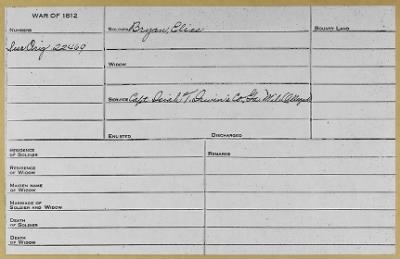 WAR OF 1812
NUMBERS
Sur Orig 22469
SOLDIER Bryan, Elias
WIDOW
SERVICE Capt. T. Irwin's Co, Ga. Mil.
ENLISTED DISCHARGED
BOUNTY LAND
RESIDENCE
OF SOLDIER
RESIDENCE
OF WIDOW
MAIDEN NAME
OF WIDOW
MARRIAGE OF
SOLDIER AND WIDOW
DEATH
OF SOLDIER
DEATH
OF WIDOW
REMARKS